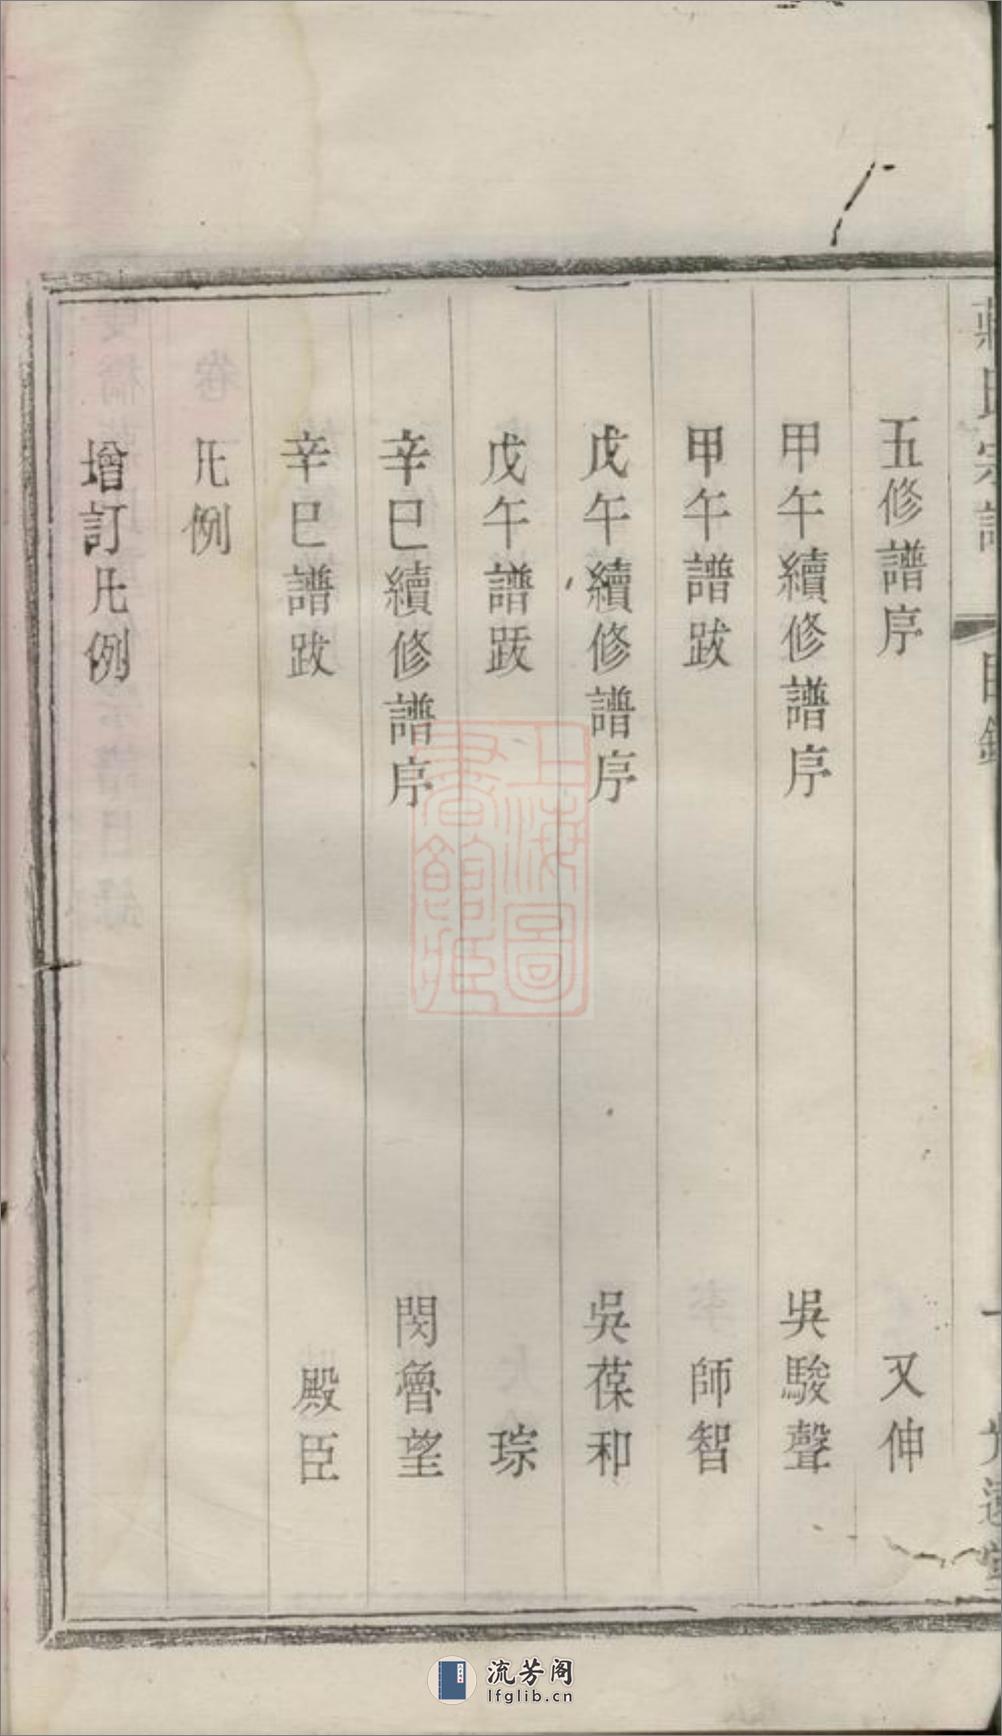 蔣氏宗譜 目錄 一
五修譜序 又伸
甲午續修譜序 吳駿聲
甲午譜跋 師智
戊午續修譜序 吳葆和
戊午譜跋 琮
辛巳續修譜序 閔魯望
辛巳譜跋 殿臣
凡例
增訂凡例
上海圖書館藏
流芳阁
lfglib.cn